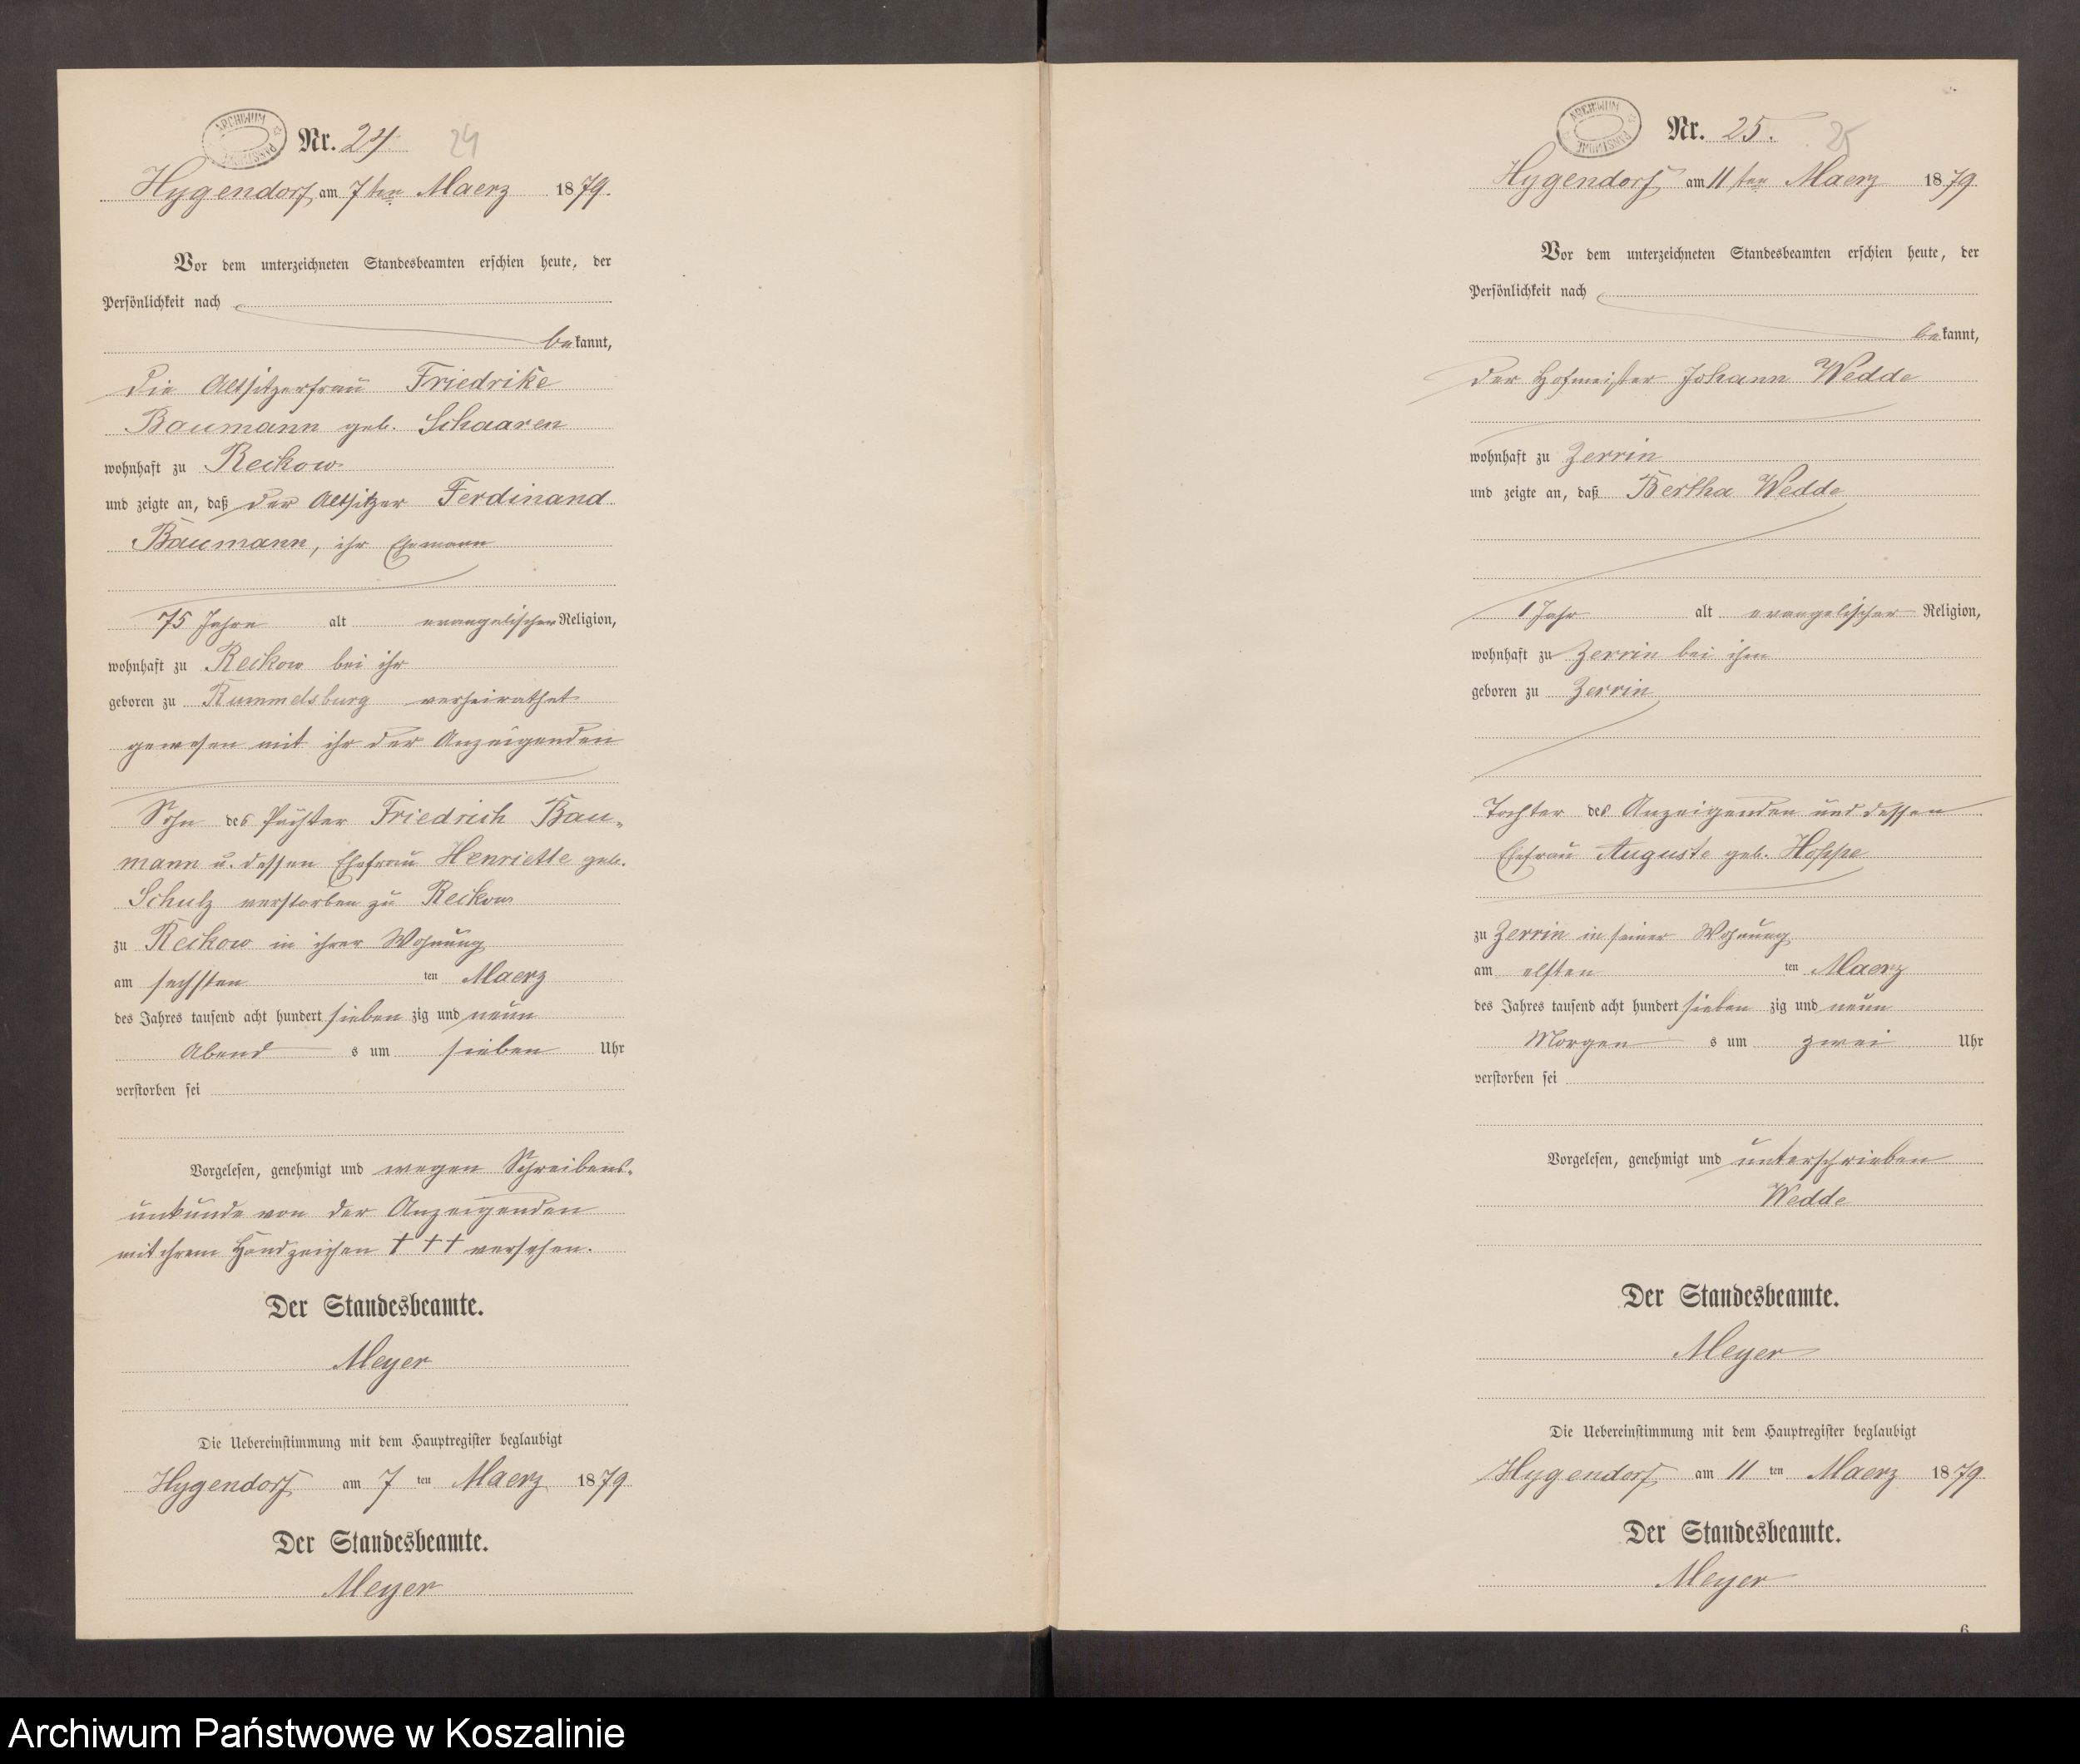 ARCHIWUM PAŃSTWOWE
Nr. 24. 24
Hygendorf am 7ten Maerz 1879.
Vor dem unterzeichneten Standesbeamten erschien heute, der
Persönlichkeit nach
bekannt,
die Altsitzerfrau Friedrike
Baumann geb. Schaaren
wohnhaft zu Reckow
und zeigte an, daß der Altsitzer Ferdinand
Baumann, ihr Ehemann
75 Jahre alt evangelischer Religion,
wohnhaft zu Reckow bei ihr
geboren zu Rummelsburg verheirathet
gewesen mit ihr der Anzeigenden
Sohn des Pächter Friedrich Bau-
mann u. dessen Ehefrau Henriette geb.
Schulz verstorben zu Reckow
zu Reckow in ihrer Wohnung
am sechsten ten Maerz
des Jahres tausend acht hundert sieben zig und neun
Abend s um sieben Uhr
verstorben sei
Vorgelesen, genehmigt und wegen Schreibens-
unkunde von der Anzeigenden
mit ihrem Handzeichen + + + versehen.
Der Standesbeamte.
Meyer
Die Uebereinstimmung mit dem Hauptregister beglaubigt
Hygendorf am 7 ten Maerz 1879
Der Standesbeamte.
Meyer
ARCHIWUM PAŃSTWOWE
Nr. 25. 25
Hygendorf am 11ten Maerz 1879
Vor dem unterzeichneten Standesbeamten erschien heute, der
Persönlichkeit nach
bekannt,
der Hofmeister Johann Wedde
wohnhaft zu Zerrin
und zeigte an, daß Bertha Wedde
1 Jahr alt evangelischer Religion,
wohnhaft zu Zerrin bei ihm
geboren zu Zerrin
Tochter des Anzeigenden und dessen
Ehefrau Auguste geb. Hoppe
zu Zerrin in seiner Wohnung
am elften ten Maerz
des Jahres tausend acht hundert sieben zig und neun
Morgen s um zwei Uhr
verstorben sei
Vorgelesen, genehmigt und unterschrieben
Wedde
Der Standesbeamte.
Meyer
Die Uebereinstimmung mit dem Hauptregister beglaubigt
Hygendorf am 11 ten Maerz 1879
Der Standesbeamte.
Meyer
6
Archiwum Państwowe w Koszalinie